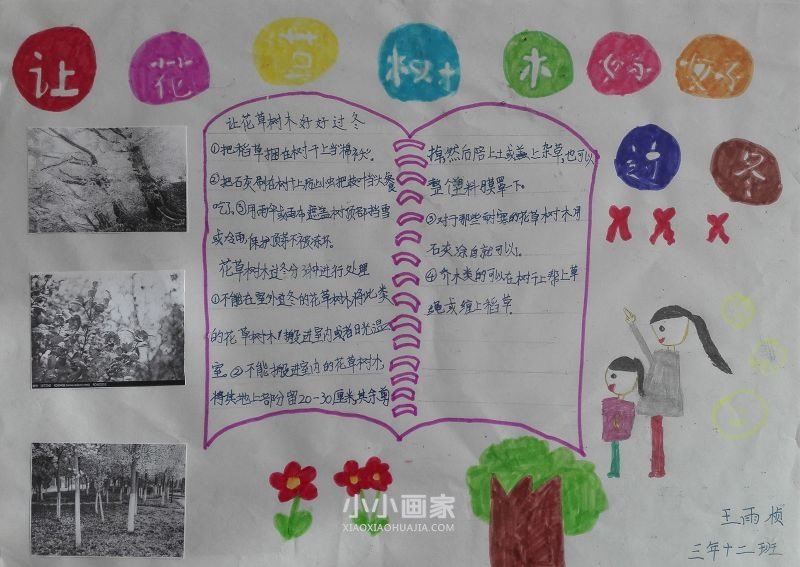 让花草树木好好
过冬
让花草树木好好过冬
①把稻草捆在树干上当棉衣。
②把石灰刷在树干上防止小虫把树干当
吃了。③用雨伞或雨布遮盖树顶部挡雪
或冷雨,保护顶芽不被冻坏。
花草树木过冬分3种进行处理
①不能在室外过冬的花草树木,将此类
的花草树木搬进室内或者日光温
室。②不能搬进室内的花草树木,
将其地上部分留20-30厘米,其余剪
掉,然后陪上土或盖上杂草,也可以
整个塑料膜罩一下。
③对于那些耐寒的花草木树木用
石灰涂白就可以。
④乔木类的可以在树干上帮上草
绳或缠上稻草。
小小画家
XIAOXIAOHUAJIA.COM
王雨桢
三年十二班